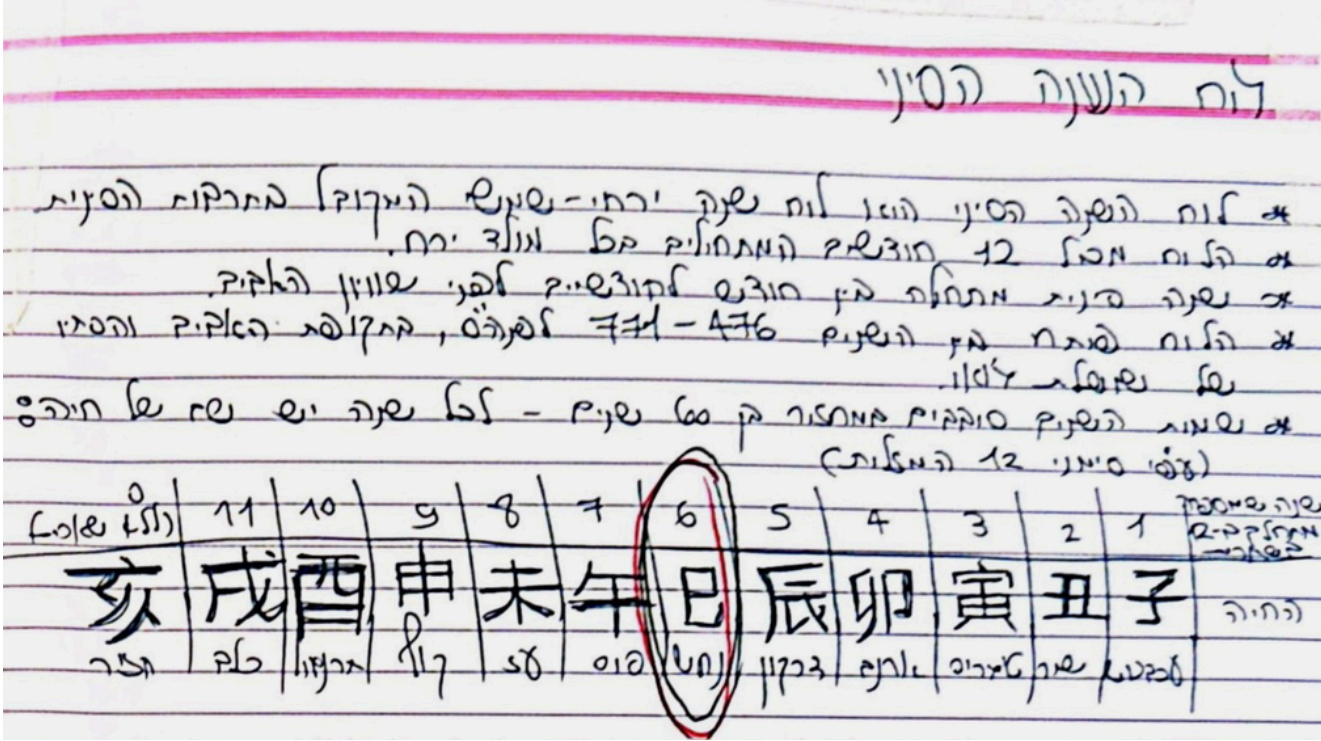 לוח השנה הסיני
* לוח השנה הסיני הוא לוח שנה ירחי-שמשי המקובל בתרבות הסינית
* הלוח מכיל 12 חודשים המתחילים בכל מולד ירח.
* שנה סינית מתחילה בין חודש לחודשיים לפני שוויון האביב.
* הלוח פותח בין השנים 771-476 לפנה"ס, בתקופת האביב והסתיו
של שושלת ג'ואו.
* שמות השנים סובבים במחזור בן 60 שנים - לכל שנה יש שם של חיה:
(עפ"י סימני 12 המזלות)
שנה שמספרה מתחלק ב-12 בשארית 1 2 3 4 5 6 7 8 9 10 11 0 (ללא שארית)
החיה 子 丑 寅 卯 辰 巳 午 未 申 酉 戌 亥
עכברוש שור טיגריס ארנב דרקון נחש סוס עז קוף תרנגול כלב חזיר